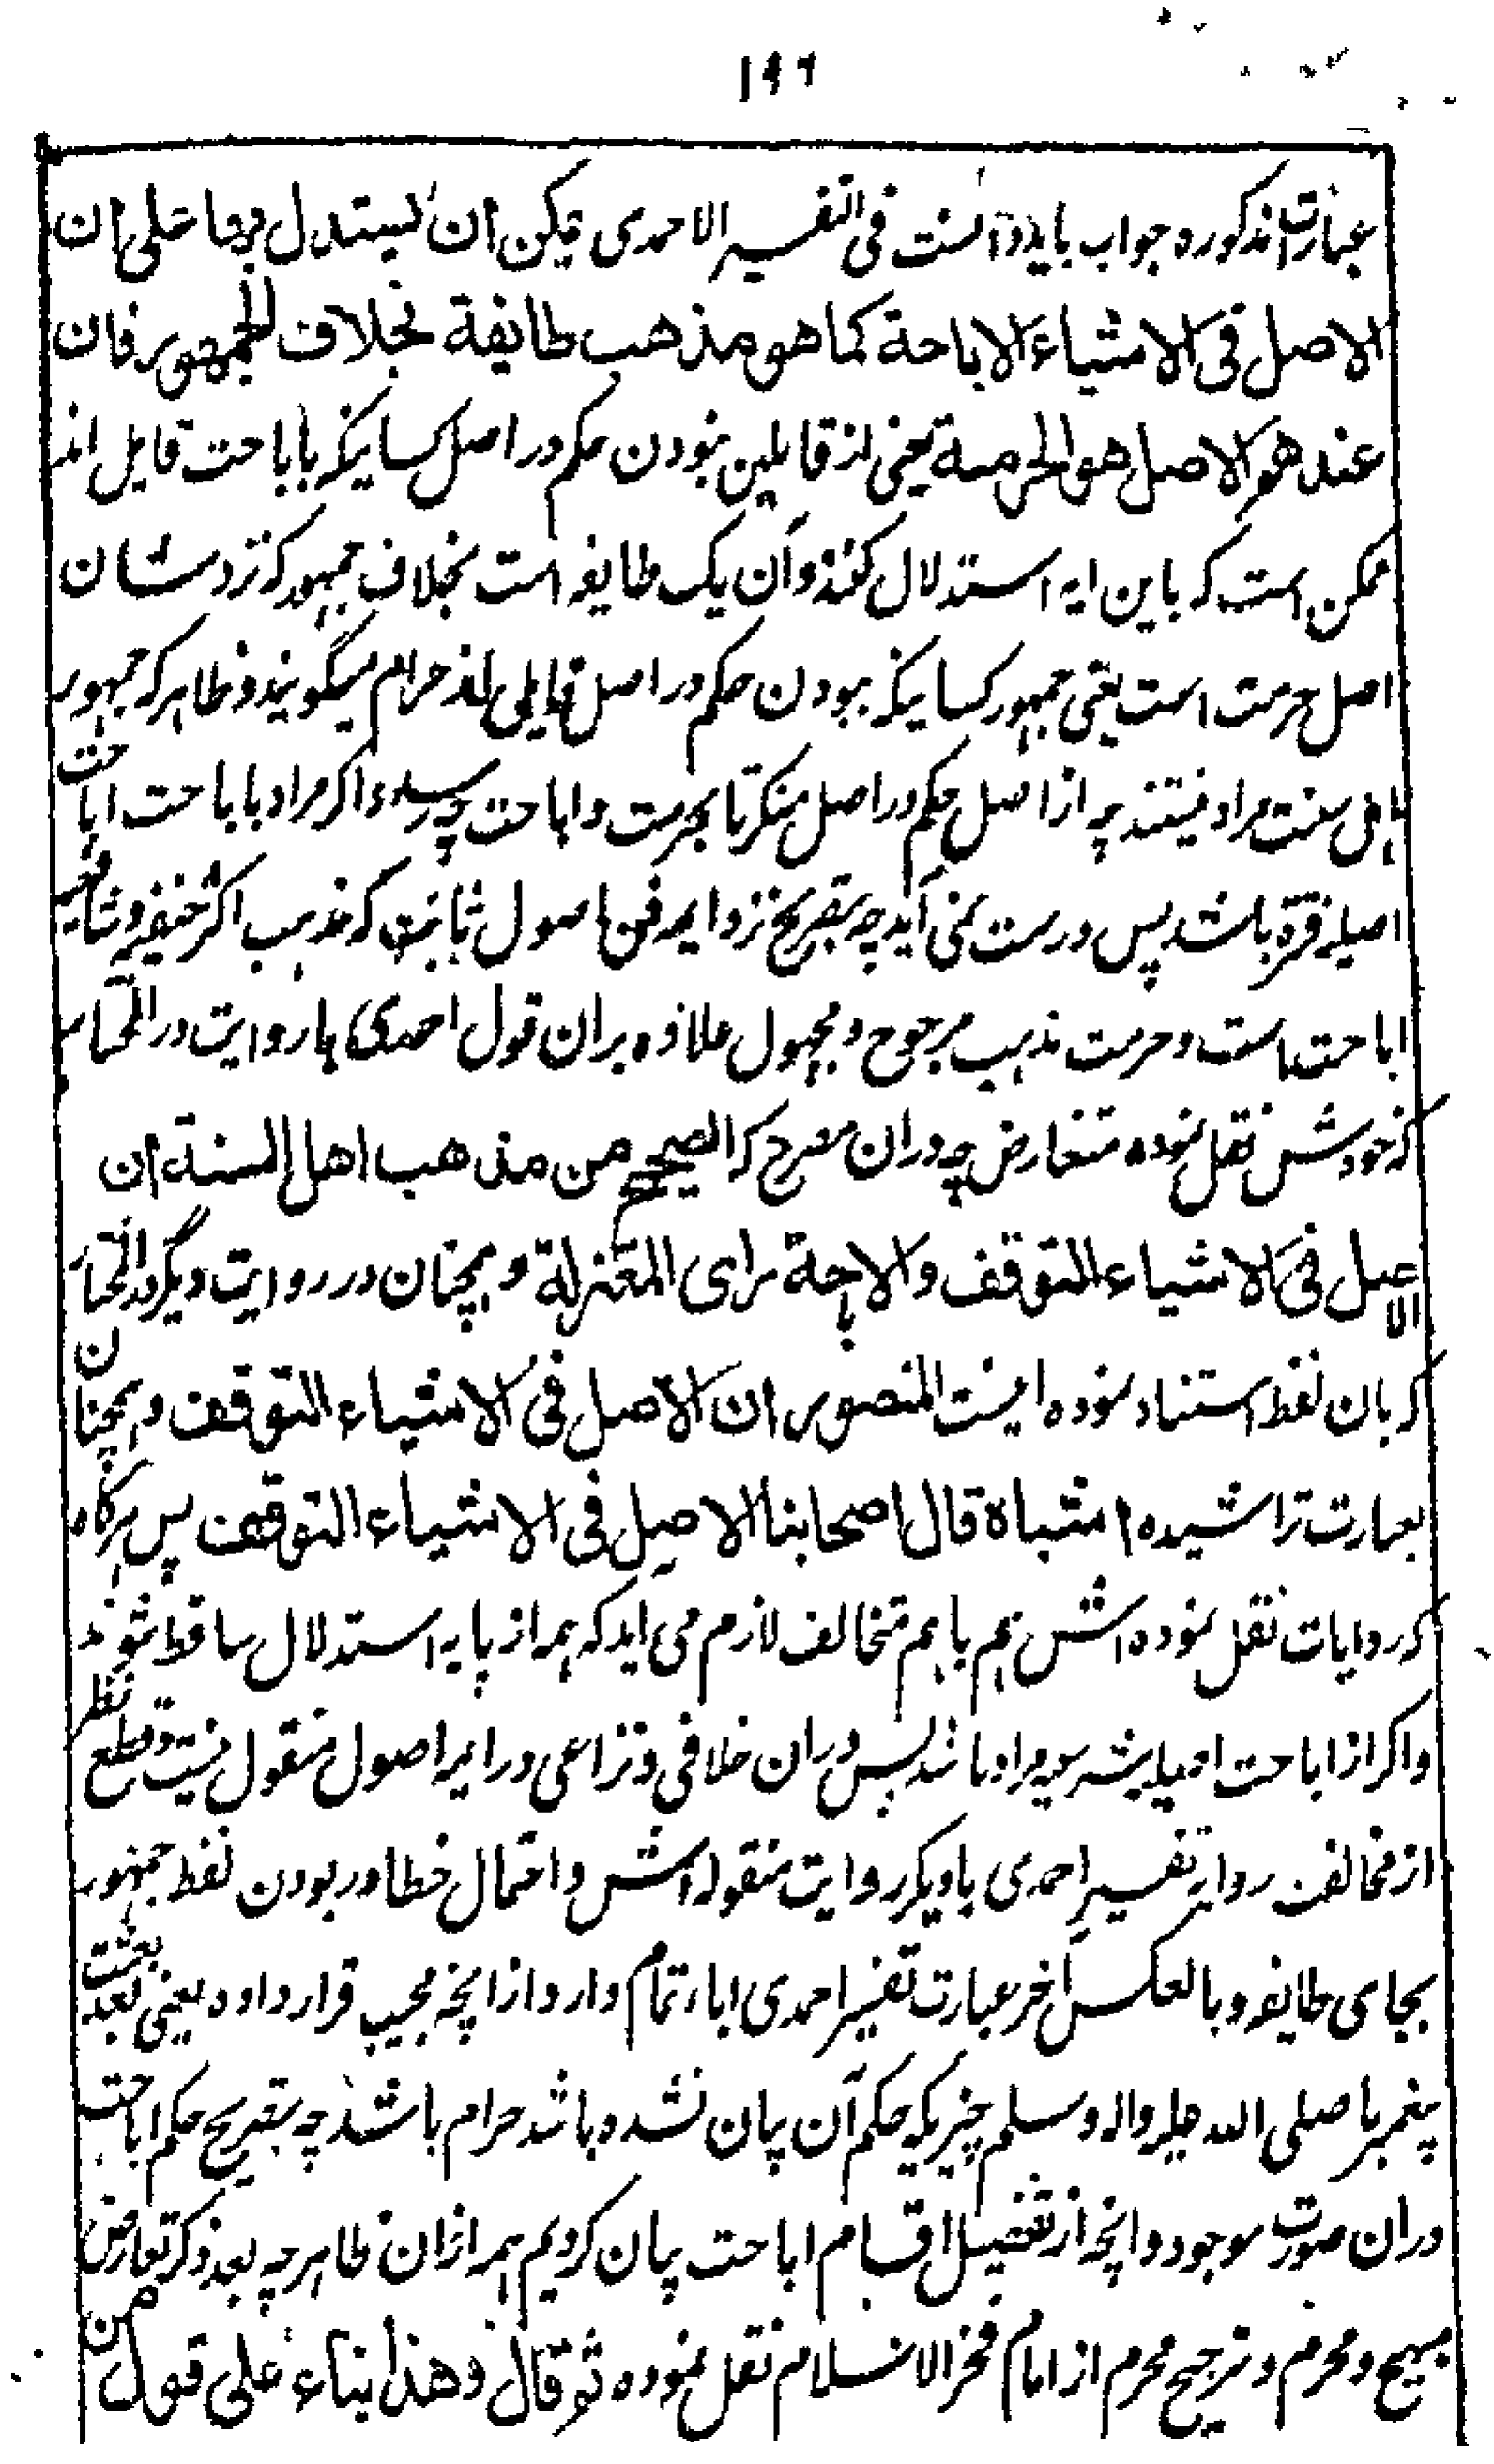 ۱۹۶
عبارت مذکوره جواب باید دانست فی التفسیر الاحمدی یمکن ان یستدل بها علی ان
الاصل فی الاشیاء الاباحة کما هو مذهب طایفة بخلاف الجمهور فان
عندهم الاصل هو الحرمة یعنی از قایلین نبودن حکم در اصل کسانیکه باباحت قایل اند
ممکن است که باین ایه استدلال کنند وآن یک طایفه است بخلاف جمهور که نزد شان
اصل حرمت است یعنی جمهور کسانیکه ببودن حکم در اصل قایلی اند حرام میگویند و ظاهر که جمهور
اهل سنت مراد نیستند چه از اصل حکم در اصل منکر تا بحرمت و اباحت چه رسد و اکر مراد باباحت اباحت
اصلیه فترة باشد پس درست نمی آید چه بتصریح نزد ایمه فن اصول ثابت که مذهب اکثر حنفیه و شافعیه
اباحت است و حرمت مذهب مرجوح و مجهول علاوه بران قول احمدی بار وایت در المختار
که خودش نقل نموده متعارض چه دران مصرح که الصحیح من مذهب اهل السنة ان
الاصل فی الاشیاء التوقف والاباحة رای المعتزلة و همچنان در روایت دیگر در المختار
که بان لفظ استناد نموده اینست المنصور ان الاصل فی الاشیاء التوقف و همچنان
بعبارت تراشیده اشباه قال اصحابنا الاصل فی الاشیاء التوقف پس هرکاه
که روایات نقل نموده اش هم باهم متخالف لازم می اید که همه از پایه استدلال ساقط شوند
واکر از اباحت اصلیه شرعیه مراد باشد پس دران خلافی و نزاعی در ایمه اصول منقول نیست و قطع نظر
از مخالفت روایه تفسیر احمدی بادیکر روایت منقوله اش و احتمال خطا در بودن لفظ جمهور
بجای طایفه و بالعکس آخر عبارت تفسیر احمدی اباء تمام دارد از انچه مجیب قرار داده یعنی بعد بعثت
پیغمبر ما صلی الله علیه واله وسلم چیزیکه حکم آن بیان نشده باشد حرام باشد چه بتصریح حکم اباحت
دران صورت موجود و انچه از تفصیل اقسام اباحت بیان کردیم همه ازان ظاهر چه بعد ذکر تعارض
مبیح و محرم و ترجیح محرم از امام فخر الاسلام نقل نموده ثم قال وهذا بناء علی قول من